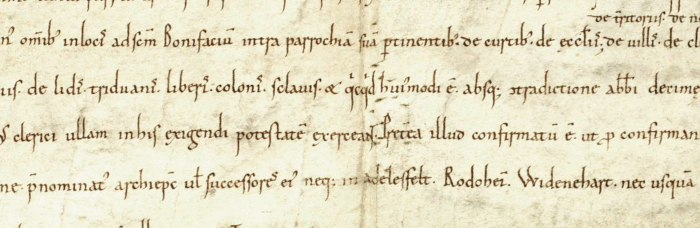 de t̄ritoriis. de
om̄ib; in locis ad sc̄m Bonifaciū intra parrochiā suā ꝑtinentib;. de curtib;. de ęccl̄iis, de villis. de
de lidis. triduanis. liberis. colonis. sclauis. & qicqd h̄uiꝰmodi ē. absq; ↄtradictione abb̄i decime
clerici ullam in his exigendi potestatē exerceant. Pret̄ea illud confirmatū ē. ut ꝓ confirman
p̄nominatꝰ archiep̄c ul̄ successores ei neq; in adelesfelt. Rodohes. Widenehart. nec usquā